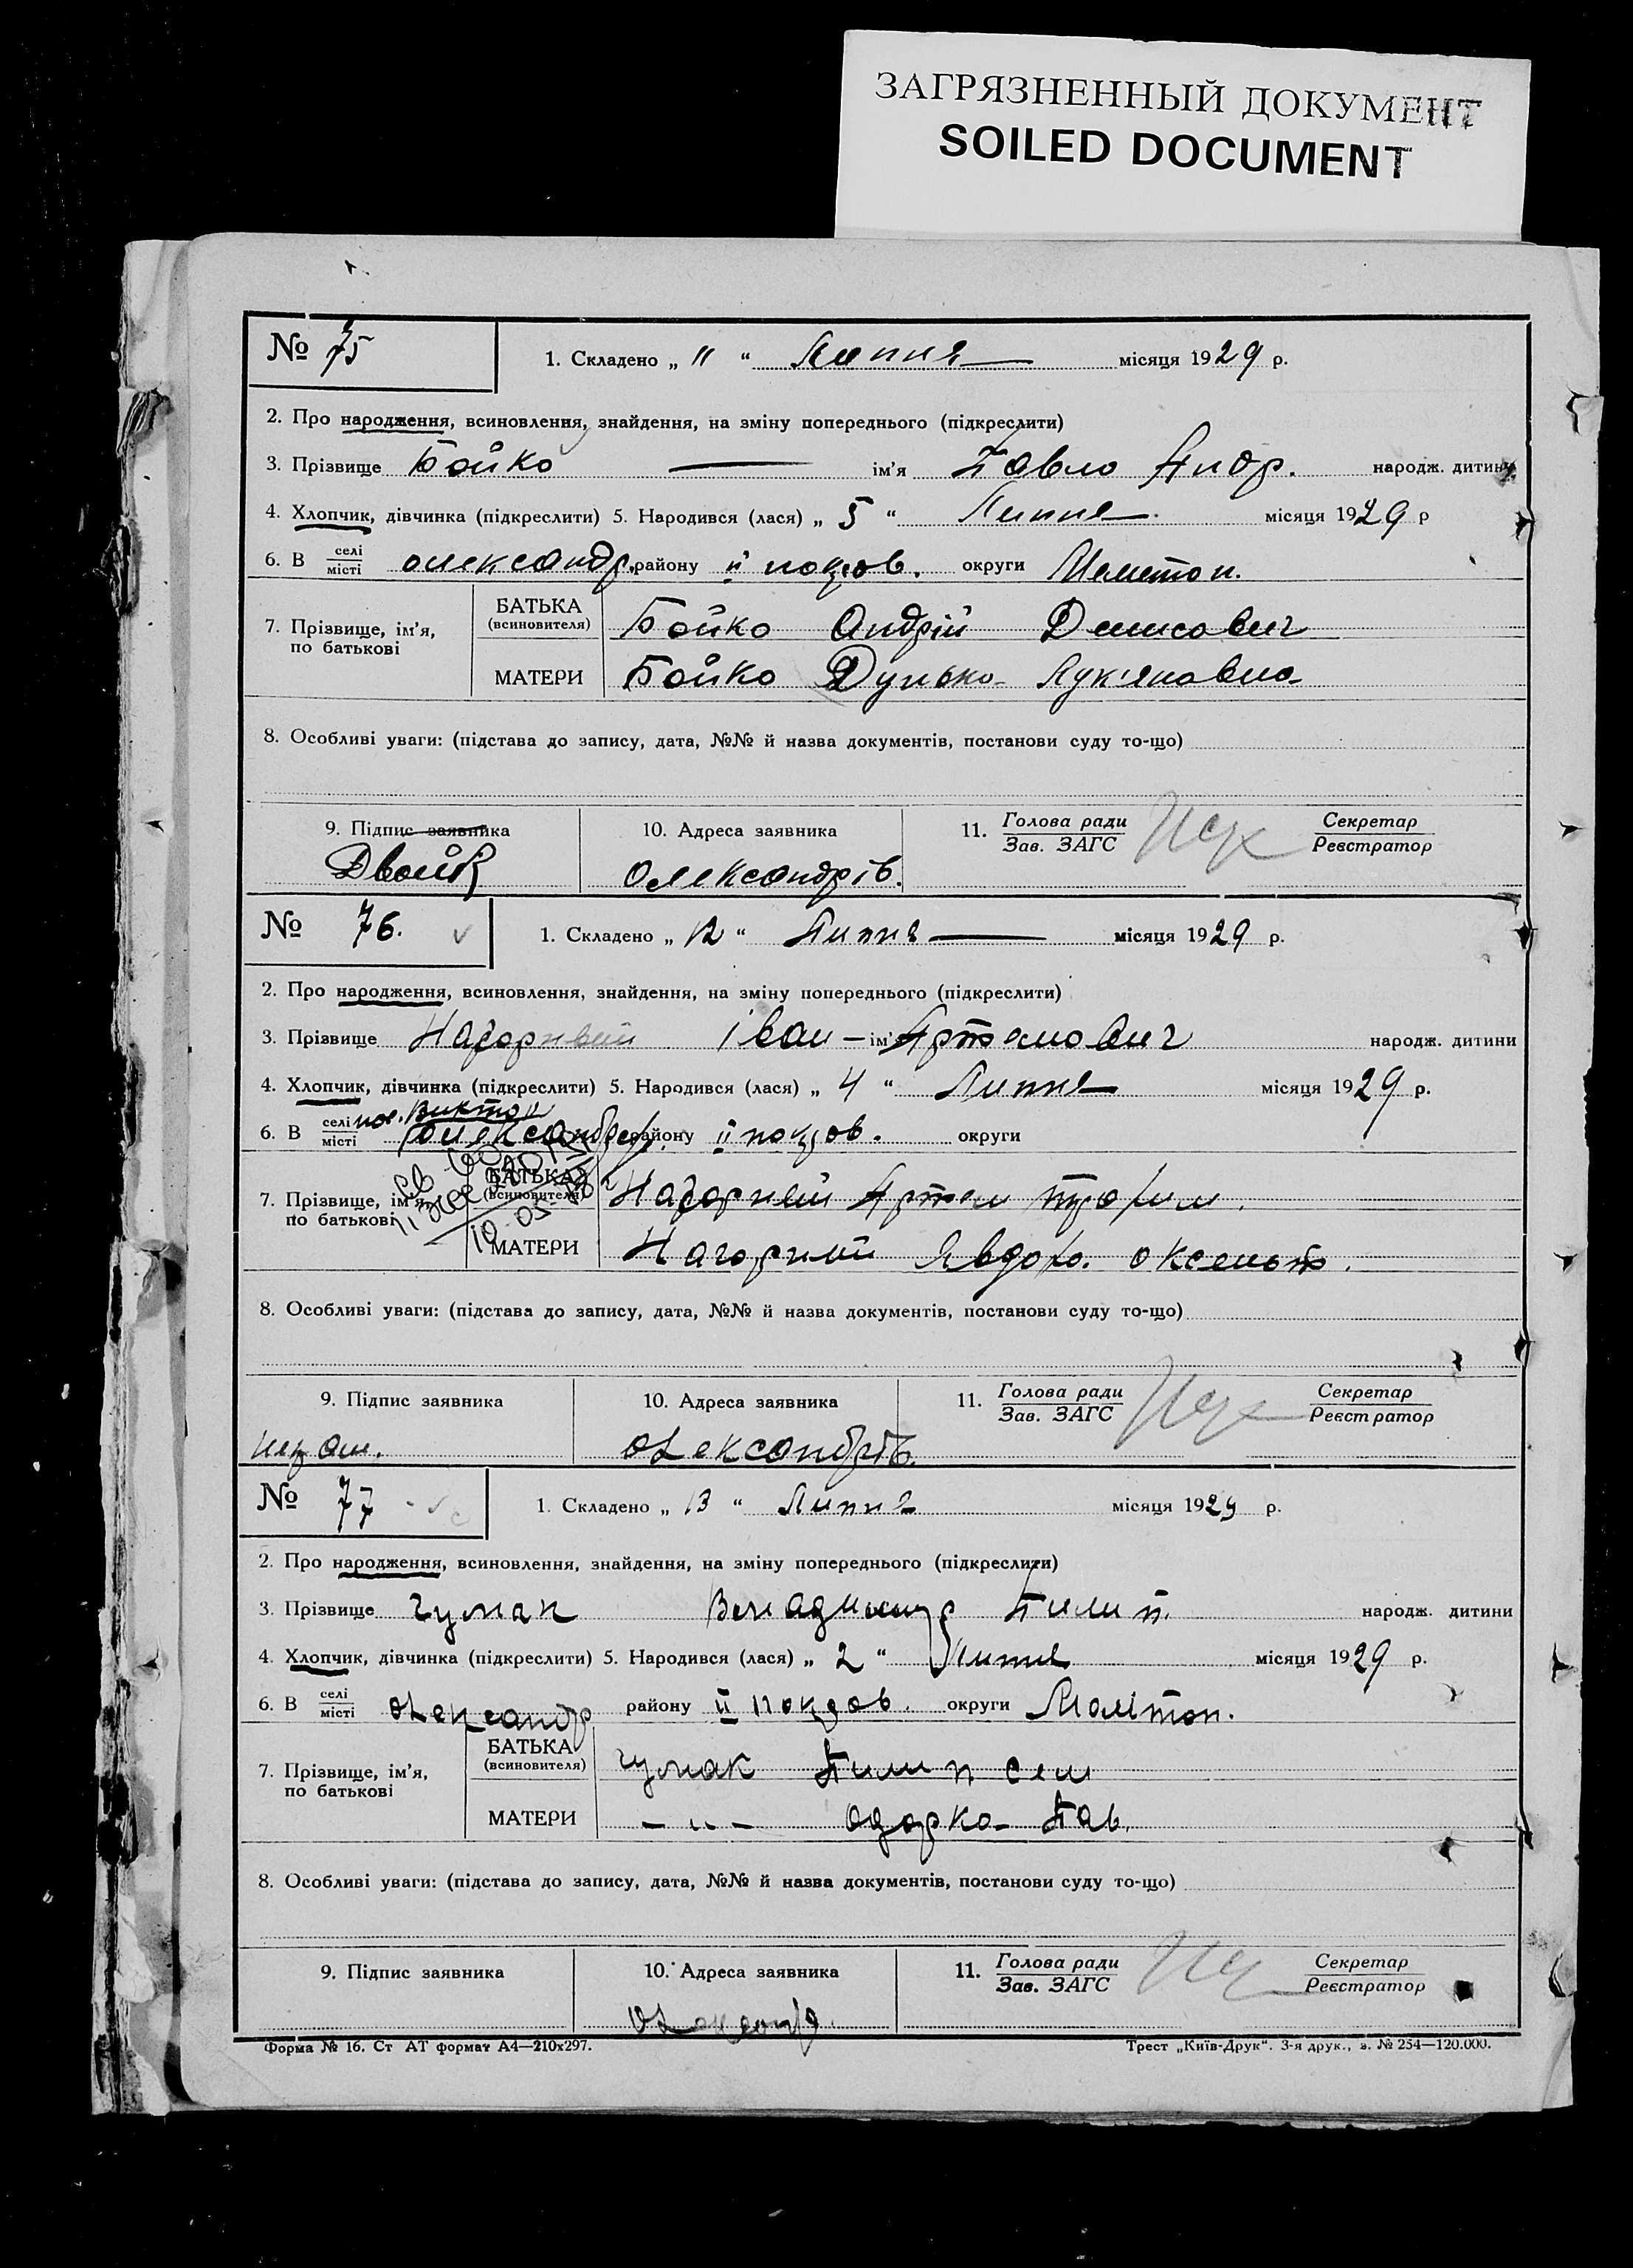 ЗАГРЯЗНЕННЫЙ ДОКУМЕНТ
SOILED DOCUMENT
№ 75
1. Складено „ 11 “ Липня місяця 1929 р.
2. Про народження, всиновлення, знайдення, на зміну попереднього (підкреслити)
3. Прізвище Бойко ім'я Павло Андр. народж. дитини
4. Хлопчик, дівчинка (підкреслити) 5. Народився (лася) „ 5 “ Липня місяця 1929 р
6. В селі/місті олександр. району II покров. округи Мелітоп.
7. Прізвище, ім'я, по батькові
БАТЬКА (всиновителя) Бойко Андрій Денисович
МАТЕРИ Бойко Дунька Лук'яновна
8. Особливі уваги: (підстава до запису, дата, №№ й назва документів, постанови суду то-що)
9. Підпис заявника 10. Адреса заявника 11. Голова ради/Зав. ЗАГС Секретар/Реєстратор
Олександрів.
№ 76.
1. Складено „ 12 “ Липня місяця 1929 р.
2. Про народження, всиновлення, знайдення, на зміну попереднього (підкреслити)
3. Прізвище Нагорный Іван ім'я Артемович народж. дитини
4. Хлопчик, дівчинка (підкреслити) 5. Народився (лася) „ 4 “ Липня місяця 1929 р.
6. В селі/місті олександр. району II покров. округи
7. Прізвище, ім'я, по батькові
БАТЬКА (всиновителя) Нагорний Артем Трофим.
МАТЕРИ Нагорний Явдох. Оксент.
8. Особливі уваги: (підстава до запису, дата, №№ й назва документів, постанови суду то-що)
9. Підпис заявника 10. Адреса заявника 11. Голова ради/Зав. ЗАГС Секретар/Реєстратор
Олександрів.
№ 77
1. Складено „ 13 “ Липня місяця 1929 р.
2. Про народження, всиновлення, знайдення, на зміну попереднього (підкреслити)
3. Прізвище Чумак Пилип. народж. дитини
4. Хлопчик, дівчинка (підкреслити) 5. Народився (лася) „ 2 “ Липня місяця 1929 р.
6. В селі/місті Олександр району II покров. округи Меліtоп.
7. Прізвище, ім'я, по батькові
БАТЬКА (всиновителя) Чумак Пилип Сем
МАТЕРИ — „ — Одарка Пав.
8. Особливі уваги: (підстава до запису, дата, №№ й назва документів, постанови суду то-що)
9. Підпис заявника 10. Адреса заявника 11. Голова ради/Зав. ЗАГС Секретар/Реєстратор
Олександ.
Форма № 16. Ст АТ формат А4—210x297. Трест „Київ-Друк“. 3-я друк., з. № 254—120.000.